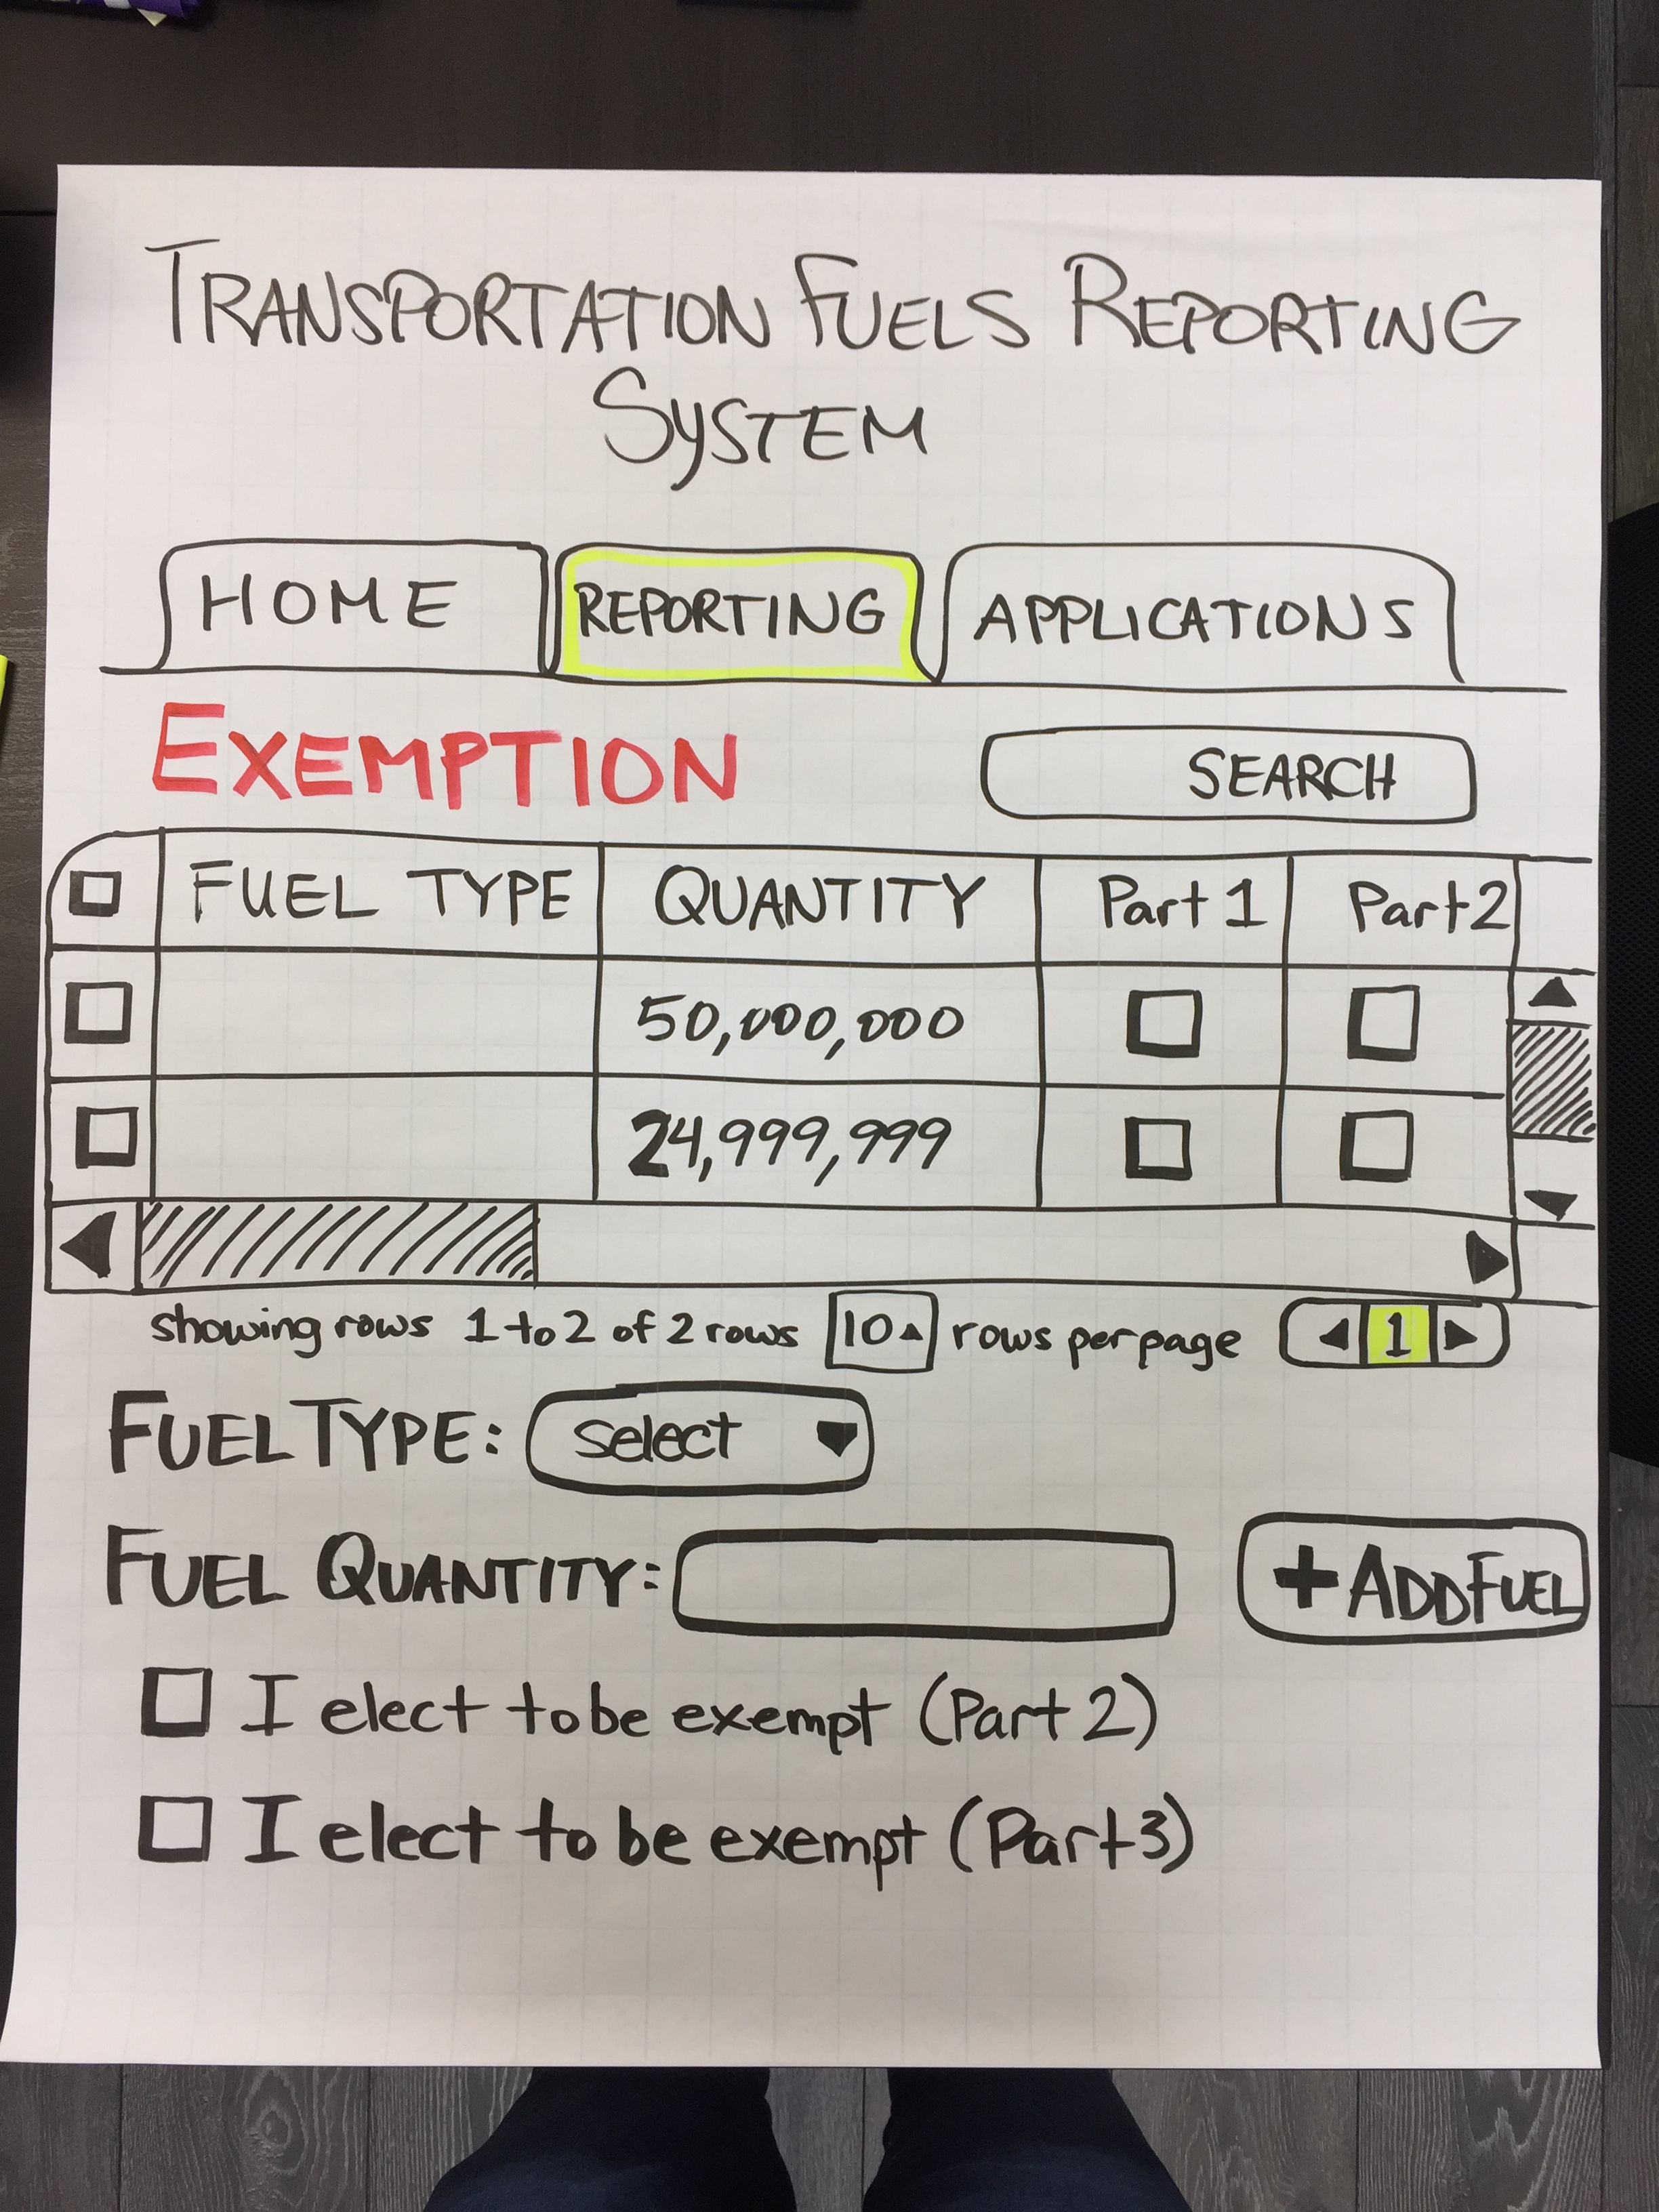 TRANSPORTATION FUELS REPORTING
SYSTEM
HOME REPORTING APPLICATIONS
EXEMPTION SEARCH
FUEL TYPE QUANTITY Part 1 Part 2
50,000,000
24,999,999
showing rows 1 to 2 of 2 rows 10 rows per page 1
FUEL TYPE: select
FUEL QUANTITY: + ADD FUEL
I elect to be exempt (Part 2)
I elect to be exempt (Part 3)